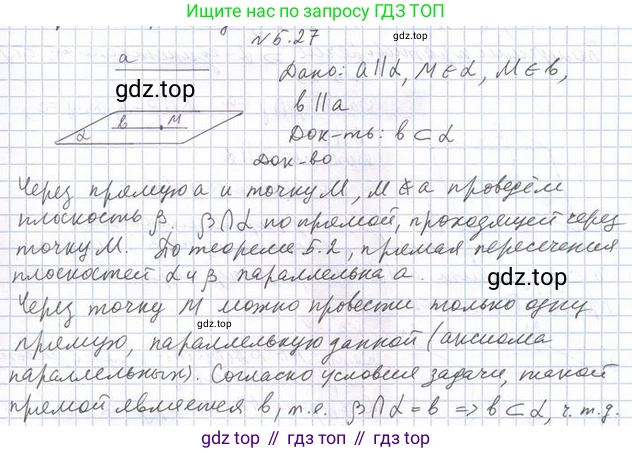 Ищите нас по запросу ГДЗ ТОП
№5.27
a
gdz.top
Дано: a||α, M∈α, M∈b,
b||a
b M
α
Док-ть: b⊂α
Док-во
Через прямую a и точку M, M∉a проведём
плоскость β, β∩α по прямой, проходящей через
точку M. По теореме 5.2, прямая пересечения
плоскостей α и β параллельна a.
gdz.top
Через точку M можно провести только одну
gdz.top
прямую, параллельную данной (аксиома
параллельных). Согласно условия задачи, такой
прямой является b, т.е. β∩α=b => b⊂α, ч.т.д.
gdz top // гдз топ // gdz top // гдз топ